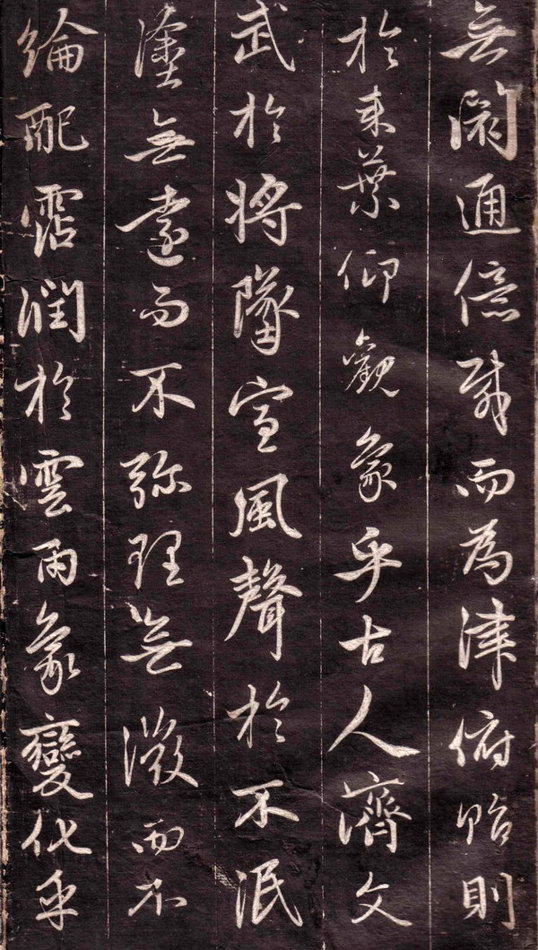 無閡通億載而為津俯貽則
於來葉仰觀象乎古人濟文
武於將墜宣風聲於不泯
塗無遠而不弥理無微而不
綸配霑潤於雲雨象變化乎